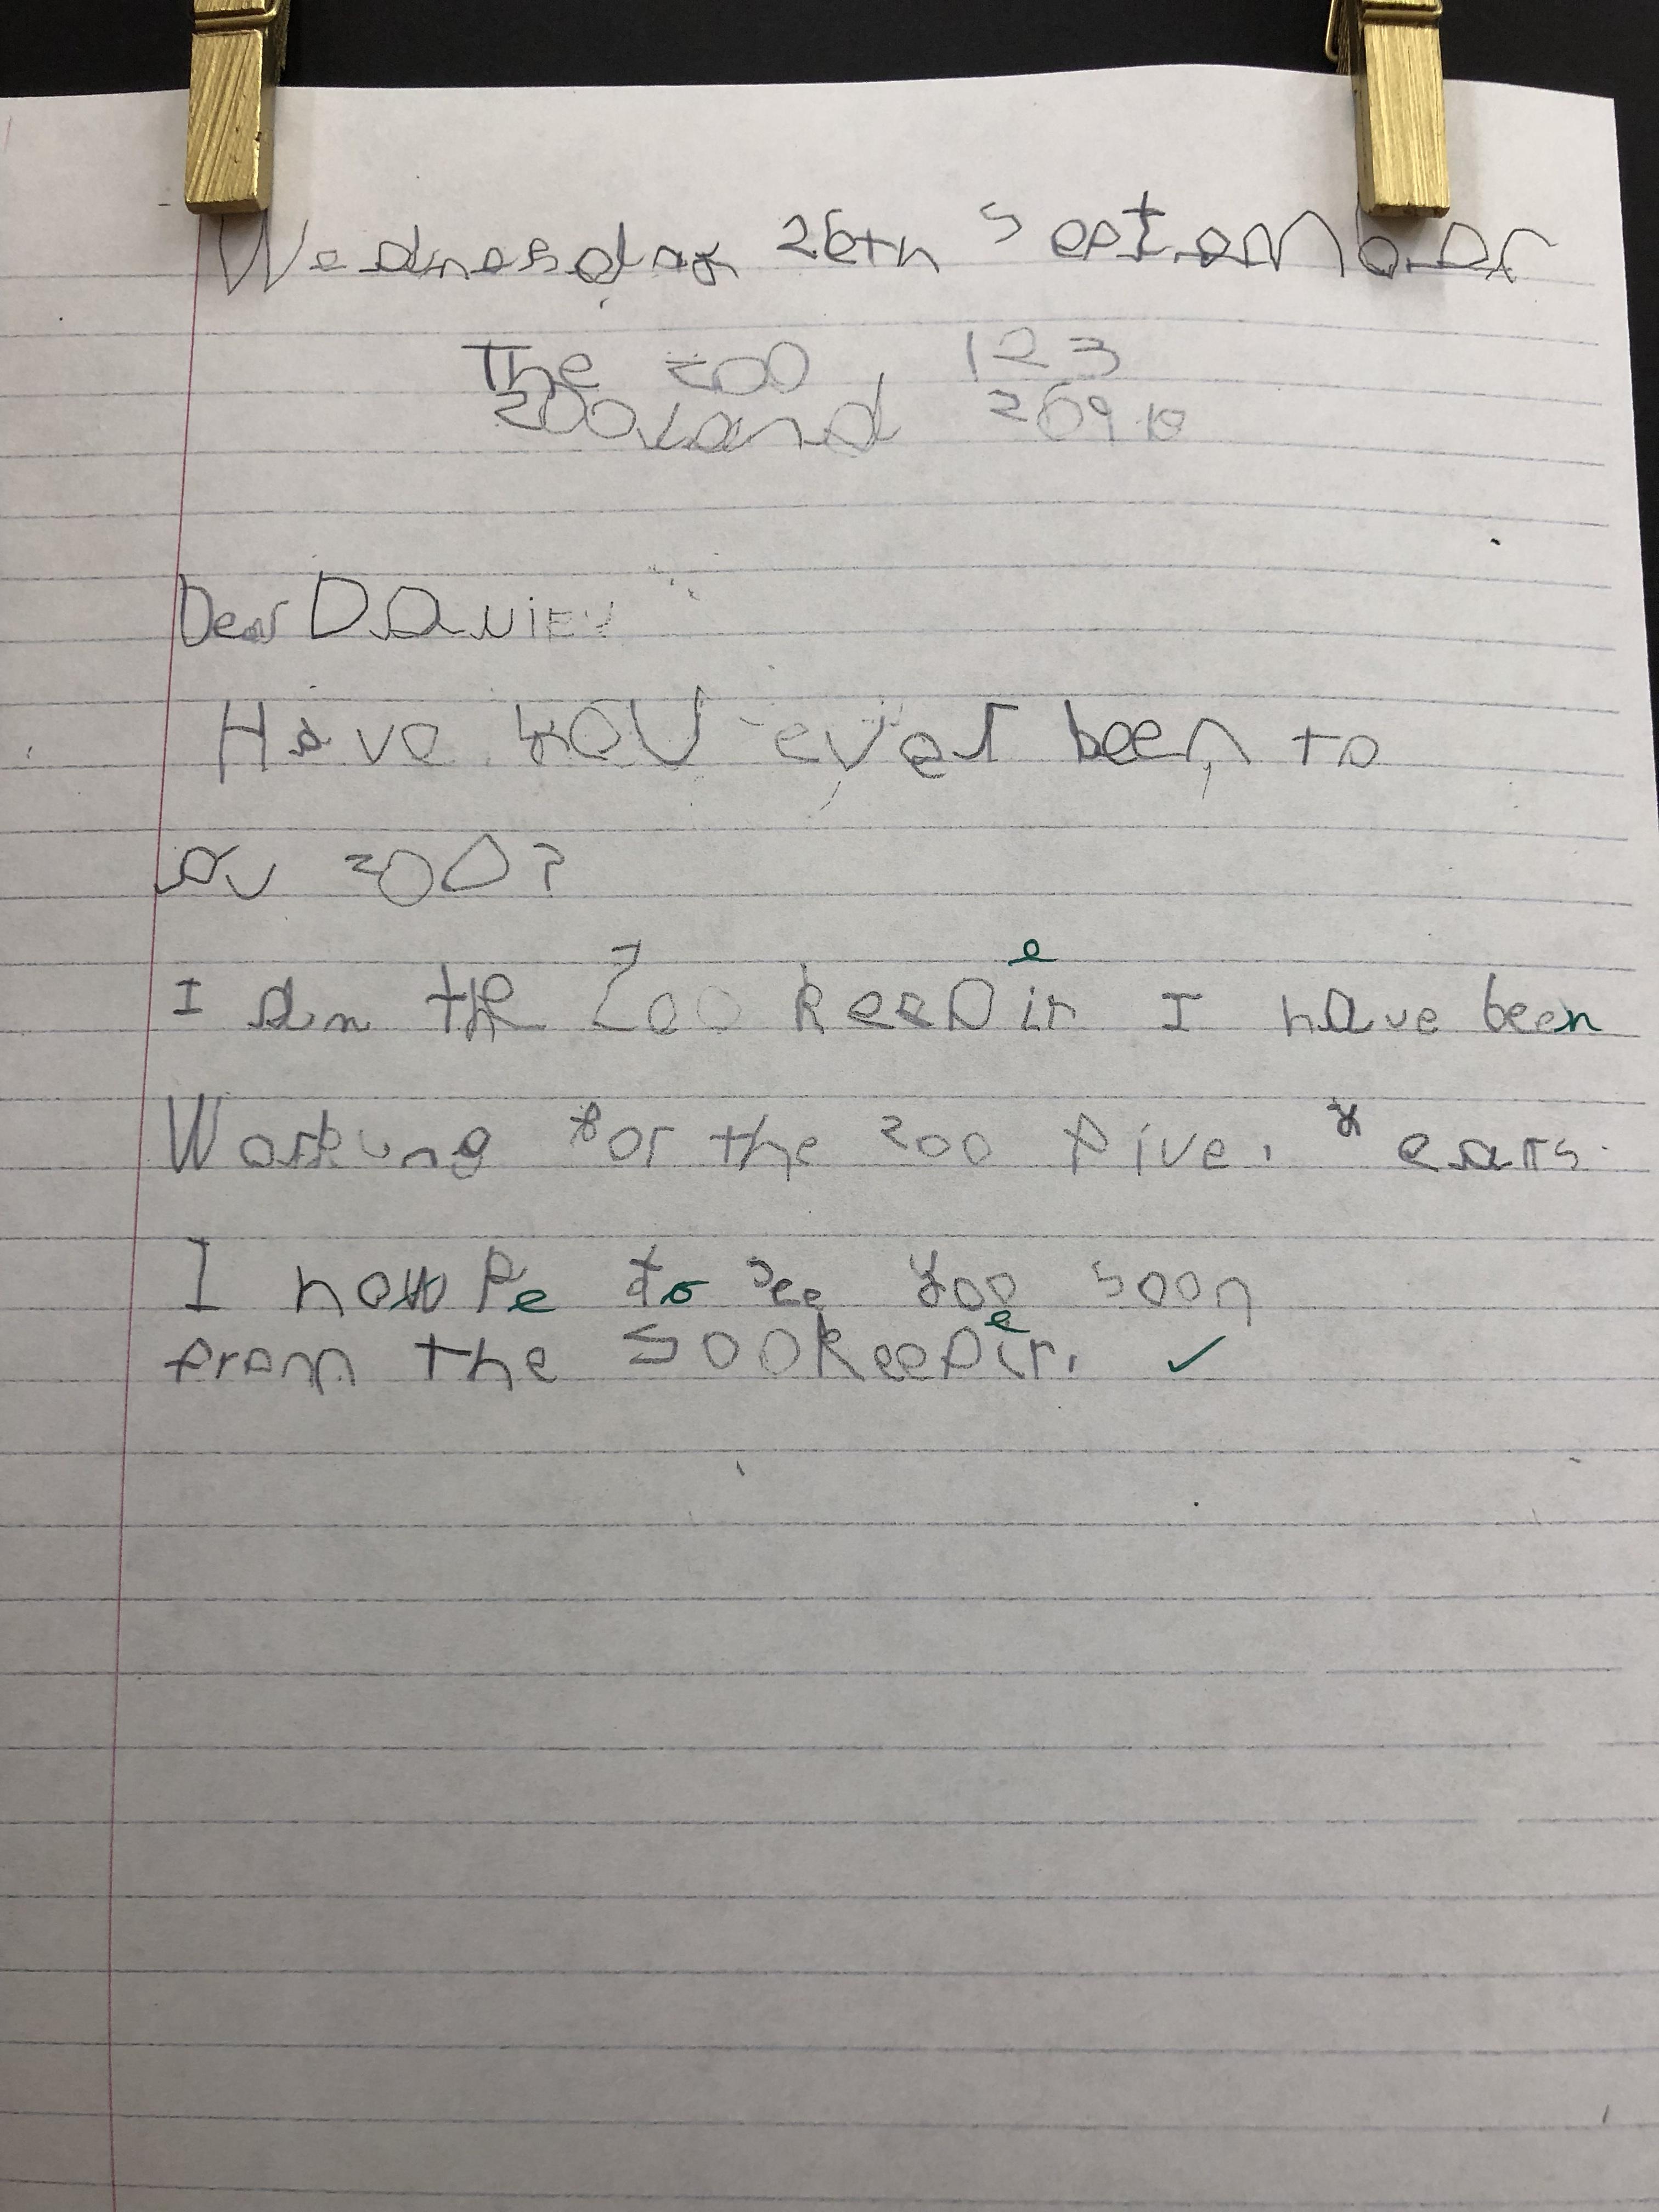 Wednesday 26th September
The zoo 123
zooland 26910
Dear Daniel
Have you ever been to
a zoo?
I am the Zoo keepir e I have been
Working for the zoo five. years.
I howpe to see yoo soon
from the sookeepir. e ✓